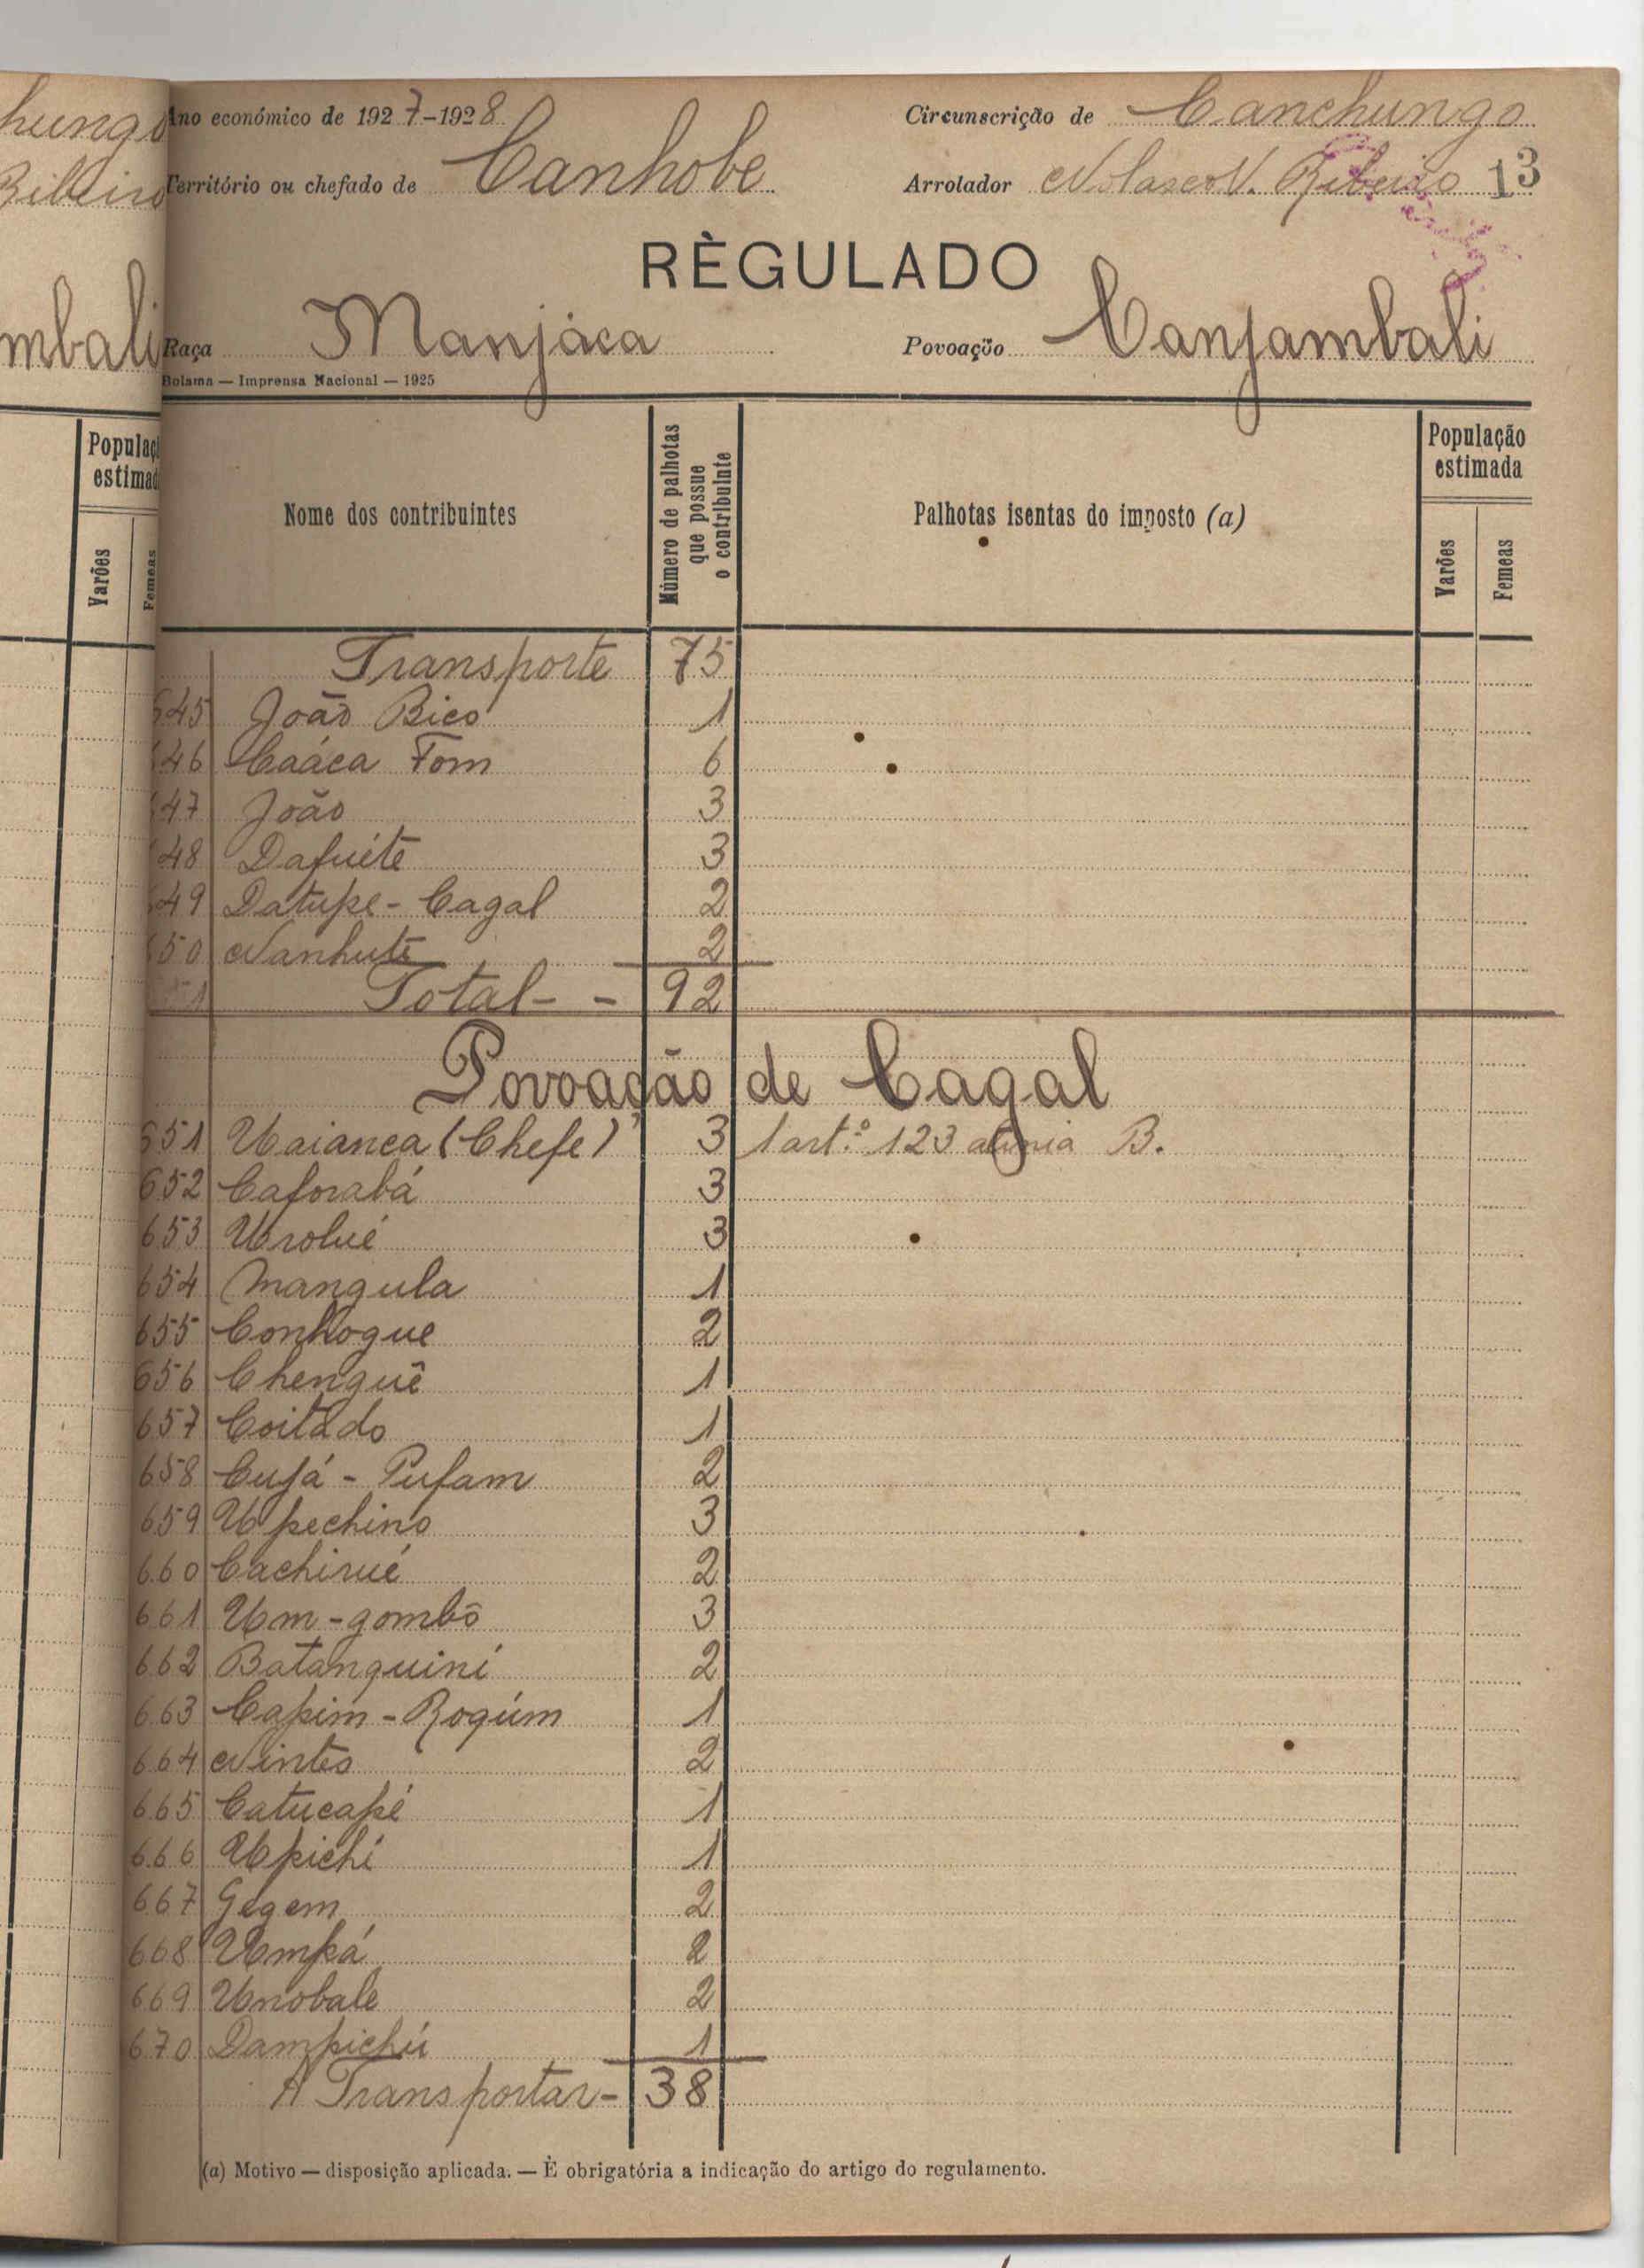 hungo
Ribeiro
mbali
Populaç
estimad
Varões
Femeas
Ano económico de 1927-1928
Circunscrição de Canchungo
Território ou chefado de Canhobe
Arrolador Nolasco V. Ribeiro 13
RÈGULADO
Raça Manjáca
Povoação Canjambali
Bolama — Imprensa Nacional — 1925
Nome dos contribuintes
Número de palhotas
que possue
o contribuinte
Palhotas isentas do imposto (a)
População
estimada
Varões
Femeas
Transporte 75
645 João Bico 1
646 Caáca Tom 6
647 João 3
648 Dafuité 3
649 Datupe - Cagal 2
650 Nanhute 2
Total - - 92
Povoação de Cagal
651 Uaianca (Chefe) 3 1 art.º 123 alinia B.
652 Caforabá 3
653 Urolué 3
654 Mangula 1
655 Conhogue 2
656 Chenguê 1
657 Coitado 1
658 Cujá - Pufam 2
659 Upechino 3
660 Cachirué 2
661 Um-gombô 3
662 Batanguiní 2
663 Capim - Rogúm 1
664 Nintes 2
665 Catucapé 1
666 Upichí 1
667 Gegem 2
668 Umpá 2
669 Unobale 2
670 Dampichú 1
A Transportar - 38
(a) Motivo — disposição aplicada. — È obrigatória a indicação do artigo do regulamento.